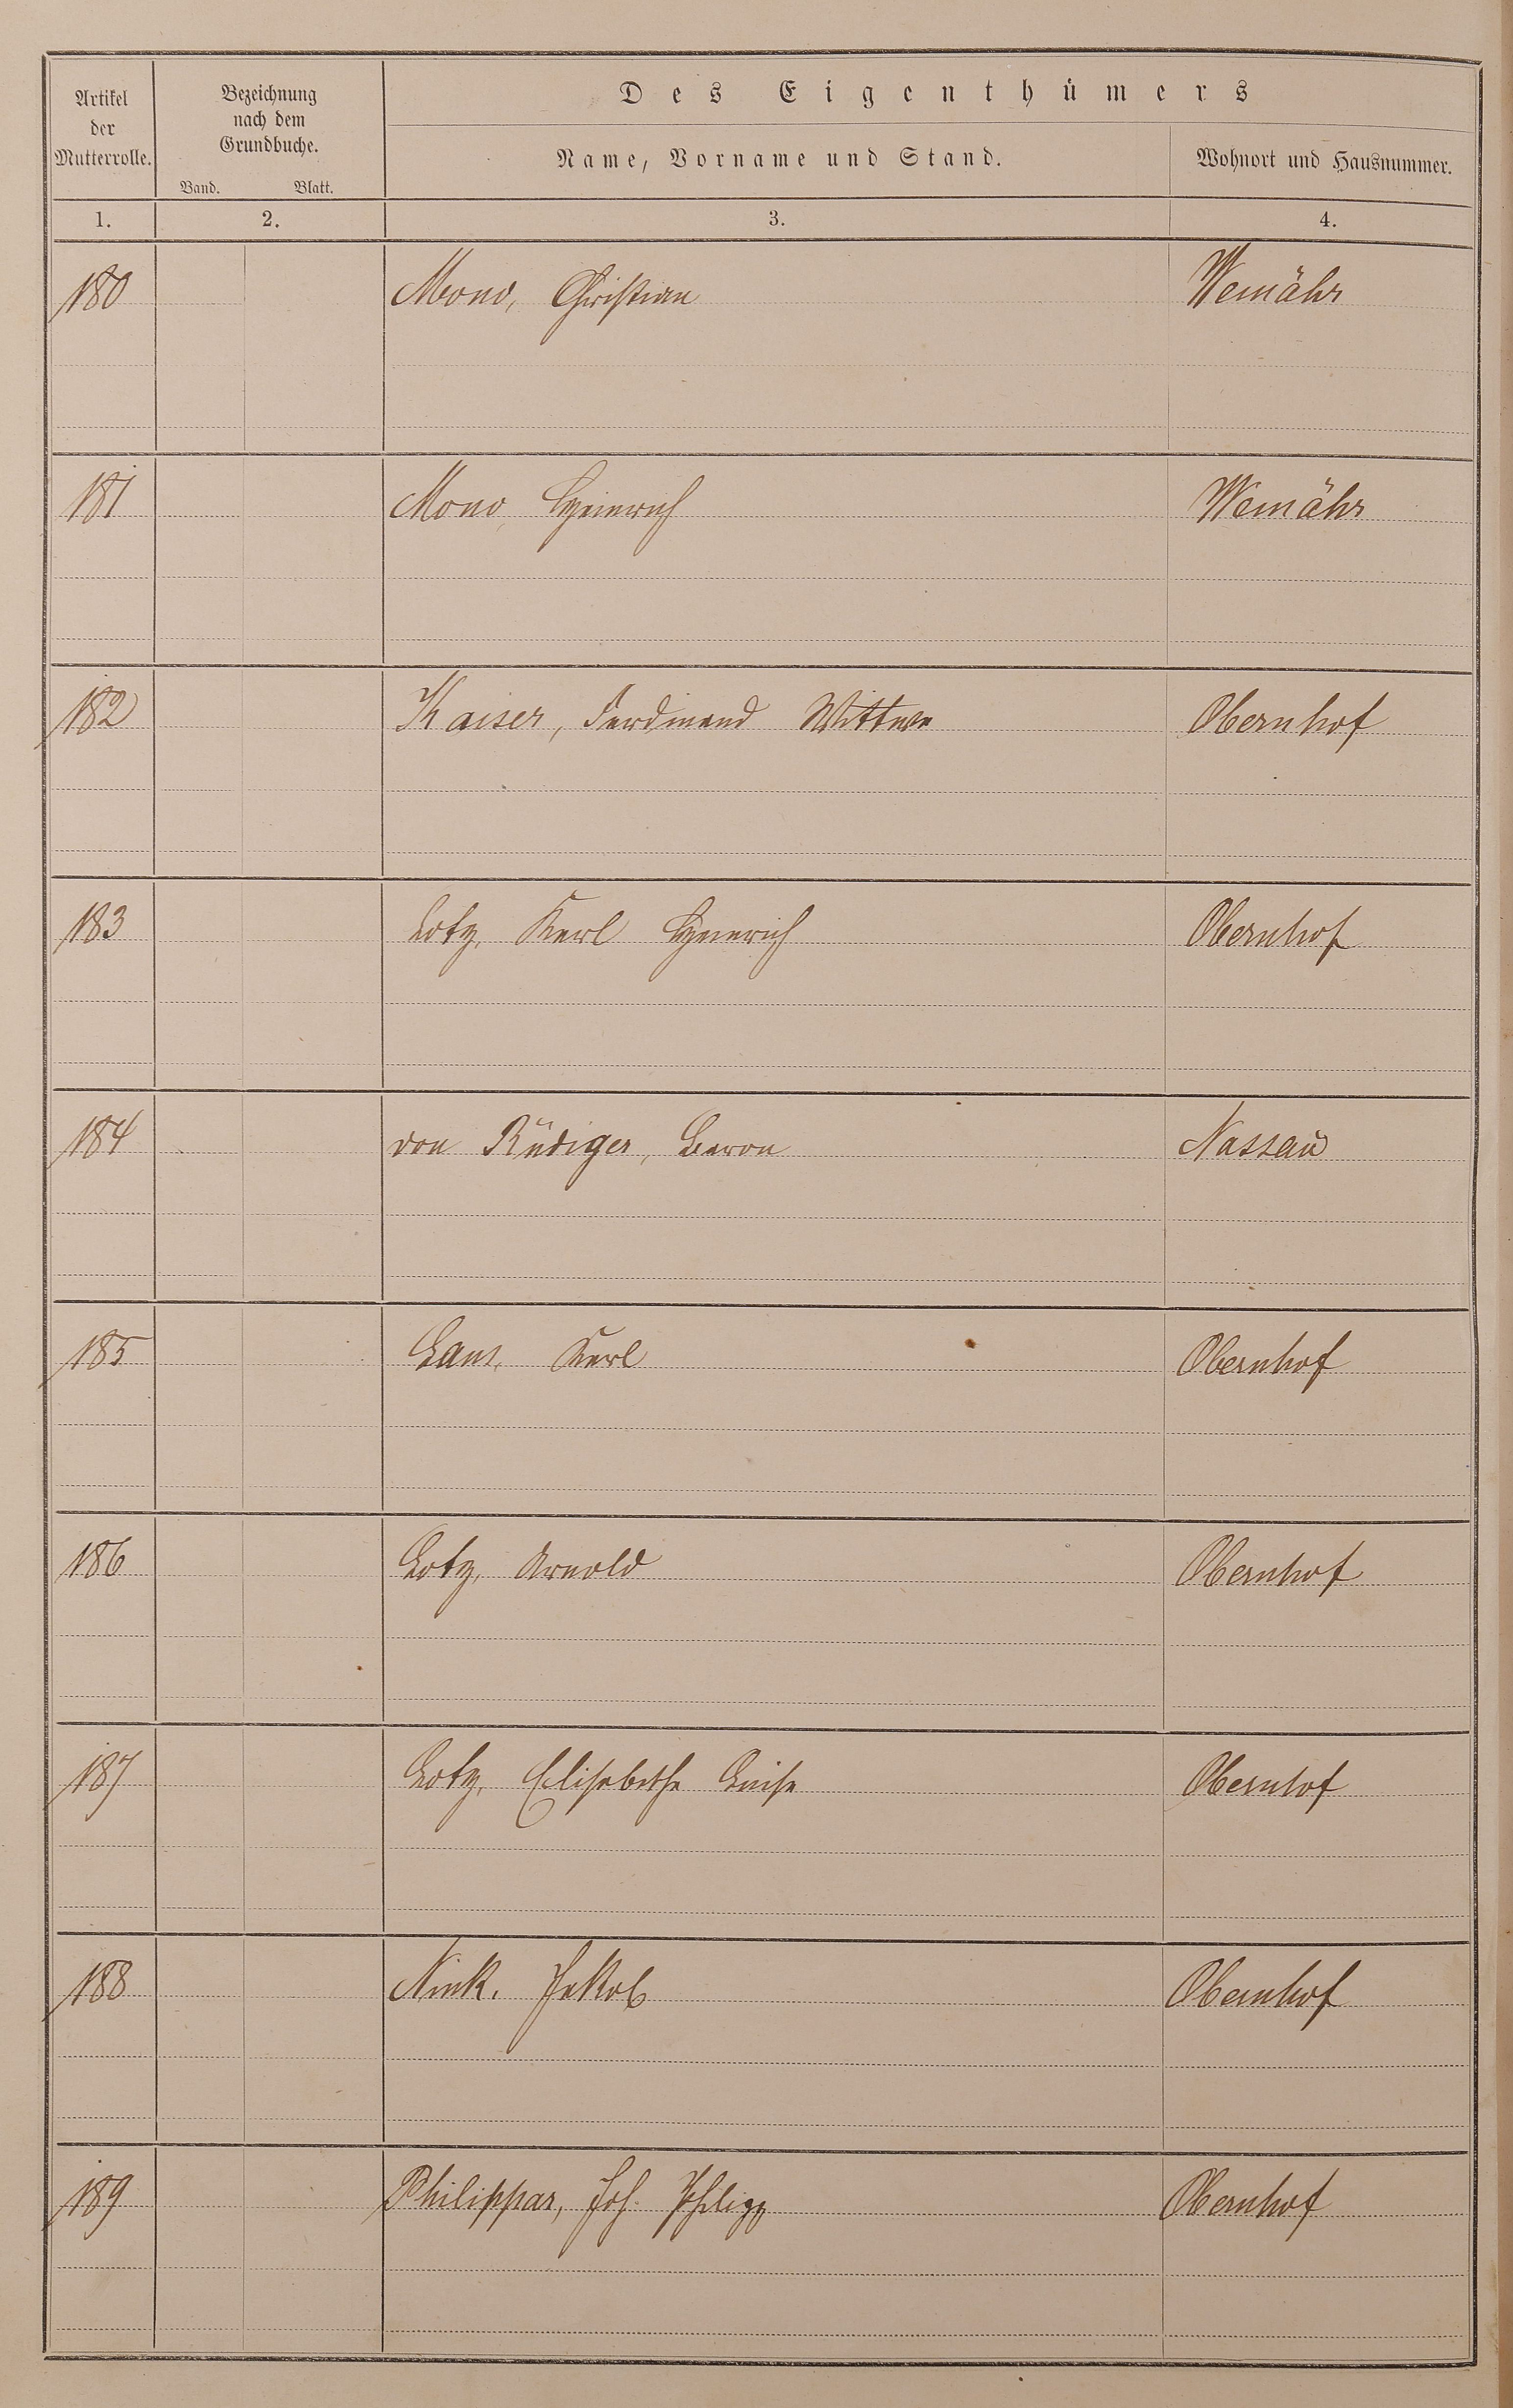 Artikel
der
Mutterrolle.
Bezeichnung
nach dem
Grundbuche.
Band. Blatt.
Des Eigenthümers
Name, Vorname und Stand.
Wohnort und Hausnummer.
1. 2. 3. 4.
180 Mono, Christian Weinähr
181 Mono, Heinrich Weinähr
182 Kaiser, Ferdinand Wittwe Obernhof
183 Lotz, Karl Heinrich Obernhof
184 von Rüdiger, Baron Nassau
185 Laux, Karl Obernhof
186 Lotz, Arnold Obernhof
187 Lotz, Elisabethe Luise Obernhof
188 Nink, Jakob Obernhof
189 Philippar, Joh. Philipp Obernhof